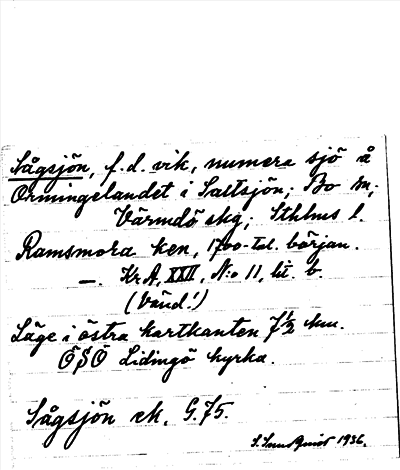 Sågsjön, f.d. vik, numera sjö å
Ormingelandet i Saltsjön; Bo sn;
Värmdö skg; Sthlms l.
Ramsmora ken, 1700-tal. början.
—. Kr.A, XXII, N:o 11, lit. b.
(Vänd!)
Läge i östra kartkanten 7½ mm.
ÖSÖ Lidingö kyrka.
Sågsjön ek. G.75.
1936.